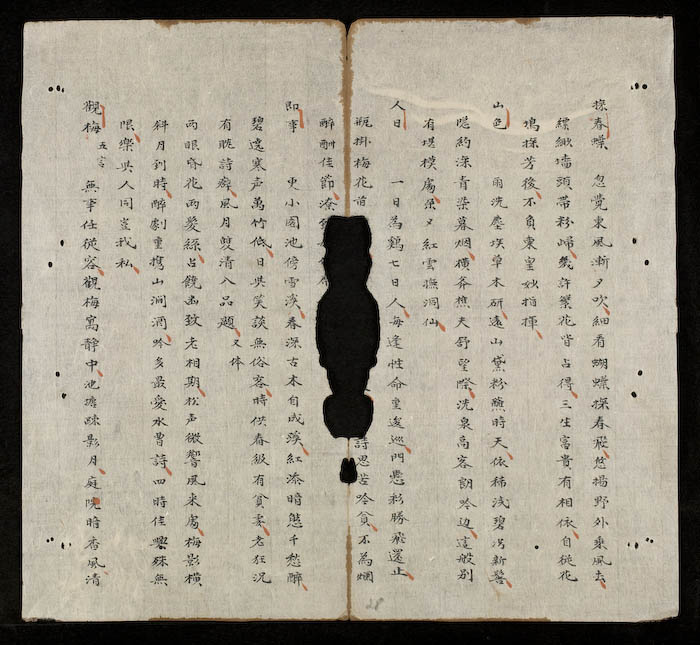 探春蝶 忽覺東風漸夕吹細看蝴蝶探春飛悠揚野外乘風去
縹緲墻頭帶粉歸幾許繁花皆占得三生富貴有相依自從花
塢探芳後不負東皇妙指揮
山色 雨洗塵埃草木研遠山黛粉隨時天依稀浅碧將新髻
隱約深青染暮烟橫莽樵夫舒望際洗泉高客助吟边這般別
有堪模處象又紅雲撫洞仙
人日 一日為鶴七日人每逢性命重逡巡門懸彩勝飛還止
瓶掛梅花
詩思苦吟貧不為烟
醉酬佳節
即事 更小園池傍雪濱春深古木自成蹊紅添暗態千愁醉
碧邊寒声萬竹低日與笑談無俗客時供春級有貧妻老狂況
有耽詩癖風月雙清入品題 又体
两眼昏花两鬢絲占饒幽致老相期松声微響風来處梅影橫
斜月到時醉劇重携山澗酒吟多最愛水曹詩四時佳興殊無
限樂與人同豈我私
觀梅 五言 無事任從容觀梅寫静中池塘疎影月庭院暗香風清